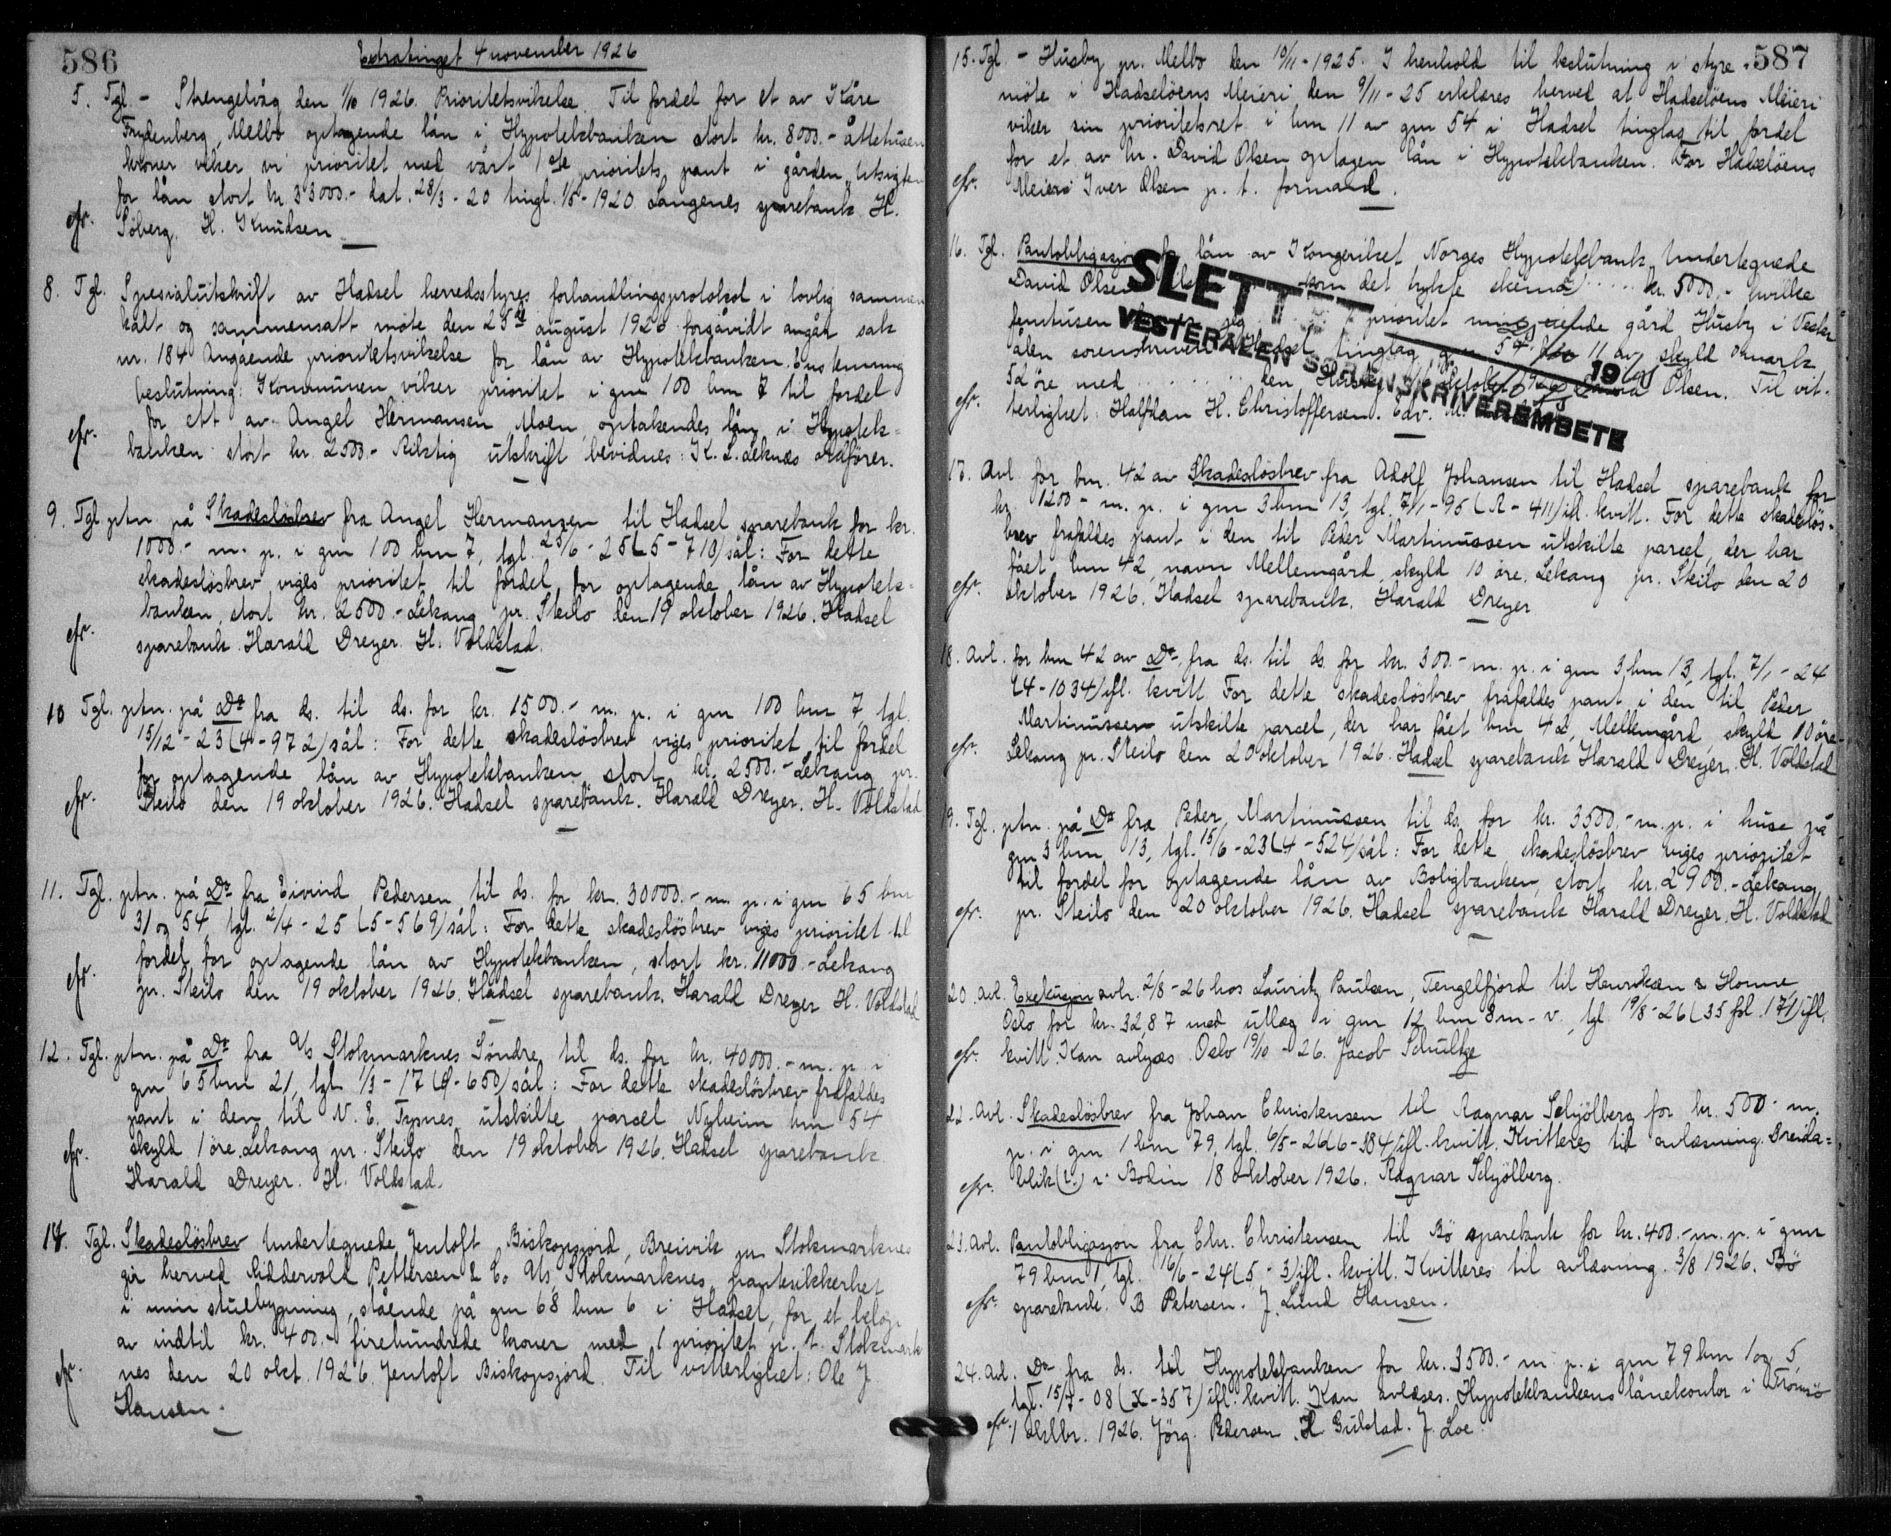 586
Extratinget 4 november 1926
5. Tgl. - Strengelvåg den 1/10 1926. Prioritetsvikelse. Til fordel for et av Kåre
Frydenberg, Melbo optagende lån i Hypotekbanken stort kr. 8000.- åttetusen
kroner viker vi prioritet med vårt 1ste prioritets pant i gården Utsigten
for lån stort kr. 33000.- dat. 28/3 - 20 tingl. 1/5 - 1920 Langenes sparebank H.
cfr. Söberg. H. Knudsen
8. Tgl. Spesialutskrift av Hadsel herredsstyres forhandlingsprotokol i lovlig sammen
kalt og sammensatt möte den 25de august 1926 forsåvidt angår sak
nr. 184 Angående prioritetsvikelse for lån av Hypotekbanken. Enstemmig
beslutning: Kommunen viker prioritet i gnr 100 bnr 7 til fordel
for ett av Angel Hermansen Moen optakendes lån i Hypotek-
cfr. banken stort kr. 2500.- Riktig utskrift bevidnes: K. L. Leknæs ordförer.
9. Tgl. ptn. på Skadeslösbrev fra Angel Hermanzen til Hadsel sparebank for kr.
1000.- m. p. i gnr 100 bnr 7, tgl. 25/6 - 25 (5 - 710) sål: For dette
skadeslösbrev viges prioritet til fordel for optagende lån av Hypotek-
banken, stort kr. 2500.- Lekang pr. Steilo den 19 oktober 1926. Hadsel
cfr. sparebank. Harald Dreyer. H. Voldstad.
10 Tgl. ptn. på Do fra ds. til ds. for kr. 1500.- m. p. i gnr 100 bnr 7, tgl.
15/12 - 23 (4 - 972) sål: For dette skadeslösbrev viges prioritet til fordel
for optagende lån av Hypotekbanken stort kr. 2500.- Lekang pr.
cfr. Steilo den 19 oktober 1926. Hadsel sparebank. Harald Dreyer. H. Voldstad
11. Tgl. ptn. på Do fra Eivind Pedersen til ds. for kr. 30000.- m. p. i gnr 65 bnr
31 og 54 tgl. 2/4 - 25 (5 - 569) sål: For dette skadeslösbrev viges prioritet til
fordel for optagende lån av Hypotekbanken, stort kr. 11000.- Lekang
cfr. pr. Steilo den 19 oktober 1926. Hadsel sparebank. Harald Dreyer H. Voldstad
12. Tgl. ptn. på Do fra A/s Stokmarknes Söndre til ds. for kr. 40000.- m. p. i
gnr 65 bnr 21, tgl. 1/3 - 17 - 650) sål: For dette skadeslösbrev frafaldes
pant i den til N. E. Tynes utskilte parcel Nyheim bnr 54
cfr. skyld 1 öre. Lekang pr. Steilo den 19 oktober 1926. Hadsel sparebank
Harald Dreyer. H. Voldstad.
14. Tgl. Skadeslösbrev Undertegnede Jentoft Biskopsjord, Breivik pr Stokmarknes
gir herved Riddervold Pettersen & Co A/s Stokmarknes, pantesikkerhet
i min stuebygning, stående på gnr 68 bnr 6 i Hadsel, for et belöp
av indtil kr. 400.- firehundrede kroner med 1 prioritet p. t. Stokmark
cfr. nes den 20 okt. 1926. Jentoft Biskopsjord. Til vitterlighet: Ole J.
Hansen.
587
15. Tgl - Husby pr. Melbo den 10/11 - 1925. I henhold til beslutning i styre-
möte i Hadselöens Meieri den 9/11 - 25 erklæres herved at Hadselöens Meieri
viker sin prioritetsret i bnr 11 av gnr 54 i Hadsel tinglag til fordel
for et av hr. David Olsen optagen lån i Hypotekbanken. For Hadselöens
cfr. Meieri Iver Olsen p. t. formand.
16. Tgl. Pantobligasjon for lån av Kongeriket Norges Hypotekbank. Undertegnede
David Olsen som det trykte skema ..... kr. 5000.- hvilke
femtusen prioritet min eiende gård Husby i Vester
ålen sorenskriveri Hadsel tinglag gnr 54 bnr 11 av skyld 0 mark
52 öre med ........ den oktober Olsen. Til vit-
cfr. terlighet: Halfdan H. Christoffersen. Edv. M.
SLETTET
19
VESTERÅLEN SORENSKRIVEREMBETE
17. Avl. for bnr. 42 av Skadeslösbrev fra Adolf Johansen til Hadsel sparebank for
kr. 1200.- m. p. i gnr 3 bnr 13, tgl. 7/1 - 95 (R - 411) ifl. kvitt. For dette skadeslös-
brev frafaldes pant i den til Peder Martinussen utskilte parcel, der har
fået bnr 42, navn Mellemgård, skyld 10 öre. Lekang pr. Steilo den 20
cfr. oktober 1926. Hadsel sparebank. Harald Dreyer
18. Avl. for bnr 42 av Do, fra ds. til ds. for kr. 300.- m. p. i gnr 3 bnr 13, tgl. 7/1 - 24
(4 - 1034) ifl. kvitt For dette skadeslösbrev frafaldes pant i den til Peder
Martinussen utskilte parcel, der har fået bnr 42, Mellemgård, skyld 10 öre-
cfr. Lekang pr. Steilo den 20 oktober 1926. Hadsel sparebank Harald Dreyer. H. Voldstad
19. Tgl. ptn. på Do fra Peder Martinussen til ds. for kr. 3500.- m. p. i huse på
gnr 3 bnr 13, tgl. 15/6 - 23 (4 - 524) sål: For dette skadeslösbrev viges prioritet
til fordel for optagende lån av Boligbanken, stort kr. 2900.- Lekang
cfr. pr. Steilo den 20 oktober 1926. Hadsel sparebank Harald Dreyer. H. Voldstad
20. Avl. Exekusjon avh. 2/8 - 26 hos Lauritz Paulsen, Tengelfjord til Henriksen & Homne
Oslo for kr. 32,87 med utlæg i gnr 12 bnr 8 m - v., tgl. 19/8 - 26 (35 fol. 171) ifl.
cfr. kvitt. Kan avlyses. Oslo 19/10 - 26. Jacob Schultze
22. Avl. Skadeslösbrev fra Johan Christensen til Ragnar Schjölberg for kr. 500.- m.
p. i gnr 1 bnr 79, tgl. 6/5 - 26 (6 - 384) ifl. kvitt. Kvitteres til avlæsning. Breida-
cfr. blik i Bodin 18 oktober 1926. Ragnar Schjölberg.
23. Avl. Pantobligasjon fra Chr. Christensen til Bö sparebank for kr. 400.- m. p. i gnr
79 bnr 1, tgl. 16/6 - 24 (5 - 3) ifl. kvitt. Kvitteres til avlæsning. 3/8 1926. Bö
cfr. sparebank. B Petersen. J. Lund Hansen.
24. Avl. Do fra ds. til Hypotekbanken for kr. 3500.- m. p. i gnr 79 bnr 1 og 5,
tgl. 15/7 - 08 (X - 357) ifl. kvitt. Kan avlæses. Hypotekbankens lånekontor i Tromsö
cfr. 1 oktbr. 1926. Jörg. Pedersen. H Gulstad. J. Loe.